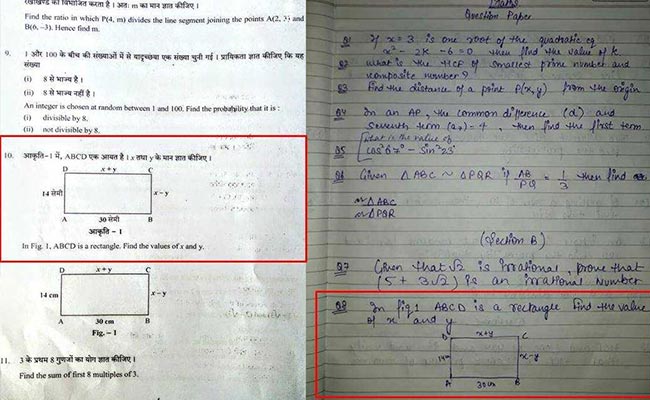 रेखाखण्ड को विभाजित करता है । अतः m का मान ज्ञात कीजिए ।
Find the ratio in which P(4, m) divides the line segment joining the points A(2, 3) and
B(6, –3). Hence find m.
9. 1 और 100 के बीच की संख्याओं में से यादृच्छया एक संख्या चुनी गई । प्रायिकता ज्ञात कीजिए कि यह
संख्या
(i) 8 से भाज्य है ।
(ii) 8 से भाज्य नहीं है ।
An integer is chosen at random between 1 and 100. Find the probability that it is :
(i) divisible by 8.
(ii) not divisible by 8.
10. आकृति-1 में, ABCD एक आयत है । x तथा y के मान ज्ञात कीजिए ।
D x + y C
14 सेमी x – y
A 30 सेमी B
आकृति - 1
In Fig. 1, ABCD is a rectangle. Find the values of x and y.
D x + y C
14 cm x – y
A 30 cm B
Fig. – 1
11. 3 के प्रथम 8 गुणजों का योग ज्ञात कीजिए ।
Find the sum of first 8 multiples of 3.
Maths
Question Paper
Q1 If x = 3 is one root of the quadratic eq
x² - 2K - 6 = 0, then find the value of k.
Q2 What is the HCF of smallest prime number and
composite number?
Q3 Find the distance of a point P(x, y) from the origin
Q4 In an AP, the common difference (d) and
Seventh term (a₇) = 4, then find the first term
What is the value of
Q5 cos²67° - Sin²23°
Q6 Given △ABC ~ △PQR if AB/PQ = 1/3 then find
ar △ABC
ar △PQR
(Section B)
Q7 Given that √2 is irrational, prove that
(5 + 3√2) is an irrational number
Q8 In fig 1 ABCD is a rectangle find the value
of x and y
D x+y C
14 x-y
A 30cm B